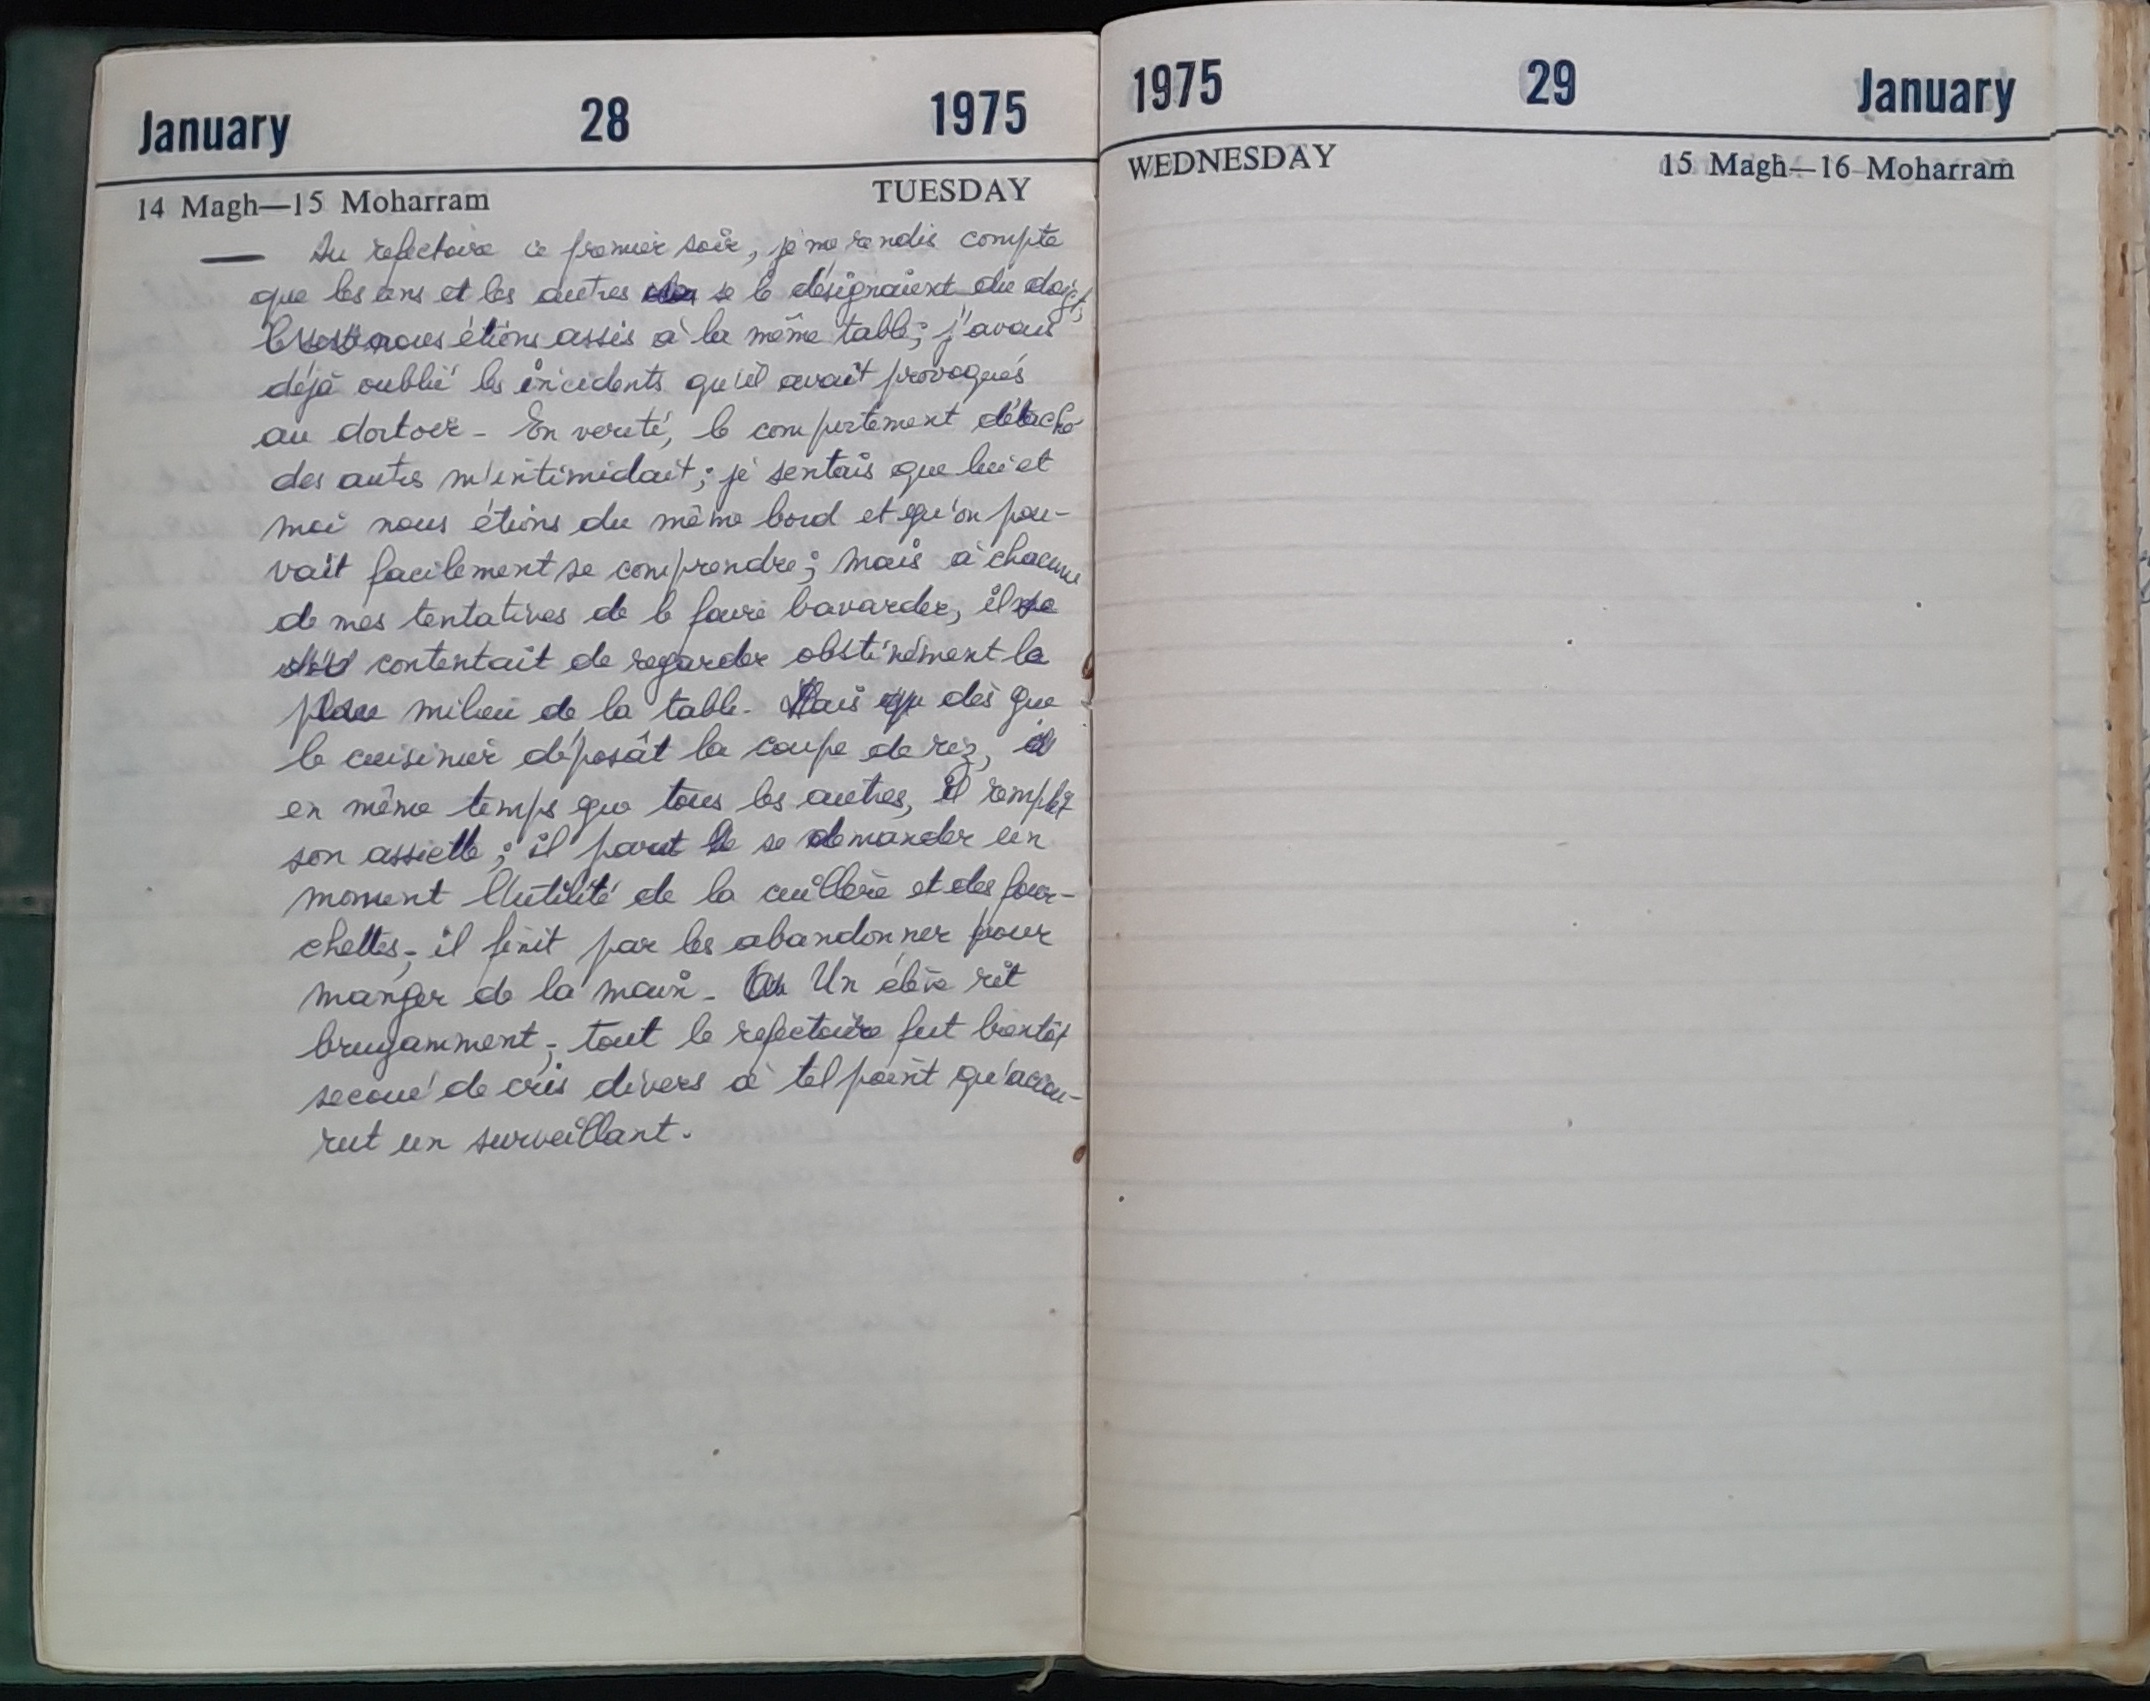 January 28 1975
14 Magh—15 Moharram TUESDAY
— Au refectoire ce premier soir, je me rendis compte
que les uns et les autres se le désignaient du doigt;
nous étions assis à la même table; j'avais
déjà oublié les incidents qu'il avait provoqués
au dortoir - En verité, le comportement détaché
des autres m'intimidait; je sentais que lui et
moi nous étions du même bord et qu'on pou-
vait facilement se comprendre; mais à chacune
de mes tentatives de le faire bavarder, il se
contentait de regarder obstinément le
milieu de la table. Mais dès que
le cuisinier déposât la coupe de riz,
en même temps que tous les autres, il remplit
son assiette; il parut se demander un
moment l'utilité de la cuillère et des four-
chettes; il finit par les abandonner pour
manger de la main - Un élève rit
bruyamment; tout le refectoire fut bientôt
secoué de cris divers à tel point qu'accou-
rut un surveillant.
1975 29 January
WEDNESDAY 15 Magh—16 Moharram